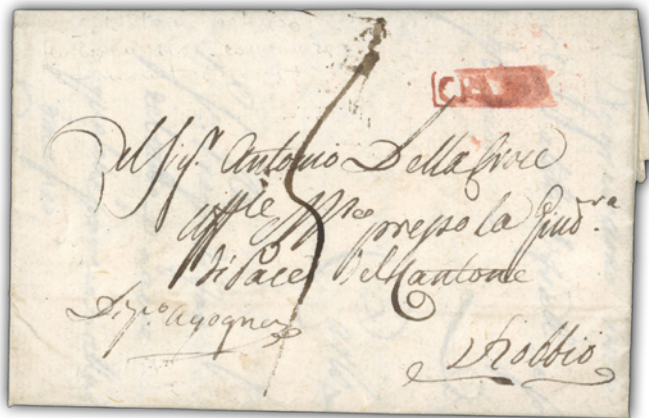 Al Sig.r Antonio Della Croce
presso la Giud.ra
di Pace del Cantone
Dip.o Agogna
Robbio